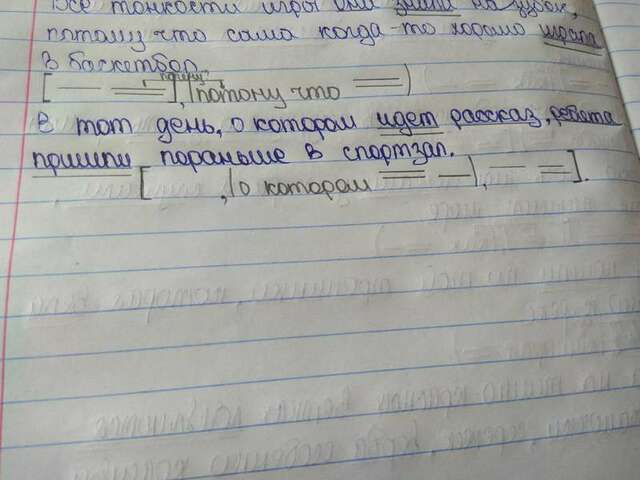 Все тонкости игры они знали на зубок,
потому что сама когда-то хорошо играла
в баскетбол.
почему?
[ — = ], (потому что = )
В тот день, о котором идет рассказ, ребята
пришли пораньше в спортзал.
[ , (о котором = — ), — = ].